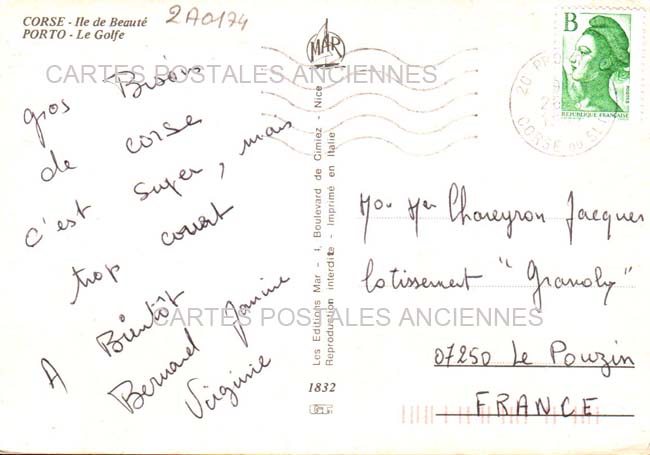 CORSE - Ile de Beauté
PORTO - Le Golfe
2A0174
MAR
B
REPUBLIQUE FRANÇAISE
20 PR
CORSE DU SUD
CARTES POSTALES ANCIENNES
gros Bisous
de corse
c'est super, mais
trop court
A Bientôt
Bernard Janine
Virginie
Les Editions Mar - 1, Boulevard de Cimiez - Nice
Reproduction interdite - Imprimé en Italie
1832
Chareyron Jacques
Lotissement "Granoly"
07250 Le Pouzin
FRANCE
CARTES POSTALES ANCIENNES